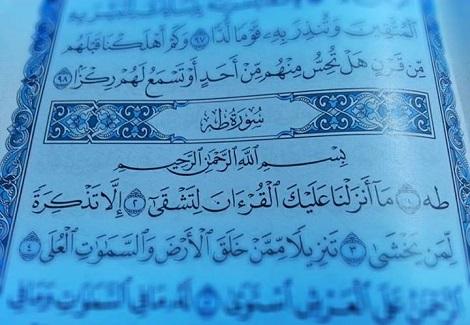 ٱلْمُتَّقِينَ وَتُنذِرَ بِهِۦ قَوْمًا لُّدًّا ٩٧ وَكَمْ أَهْلَكْنَا قَبْلَهُم
مِّن قَرْنٍ هَلْ تُحِسُّ مِنْهُم مِّنْ أَحَدٍ أَوْ تَسْمَعُ لَهُمْ رِكْزًا ٩٨
سُورَةُ طه
بِسْمِ ٱللَّهِ ٱلرَّحْمَٰنِ ٱلرَّحِيمِ
طه ١ مَآ أَنزَلْنَا عَلَيْكَ ٱلْقُرْءَانَ لِتَشْقَىٰٓ ٢ إِلَّا تَذْكِرَةً
لِّمَن يَخْشَىٰ ٣ تَنزِيلًا مِّمَّنْ خَلَقَ ٱلْأَرْضَ وَٱلسَّمَٰوَٰتِ ٱلْعُلَى ٤
ٱلرَّحْمَٰنُ عَلَى ٱلْعَرْشِ ٱسْتَوَىٰ ٥ لَهُۥ مَا فِي ٱلسَّمَٰوَٰتِ وَمَا فِي